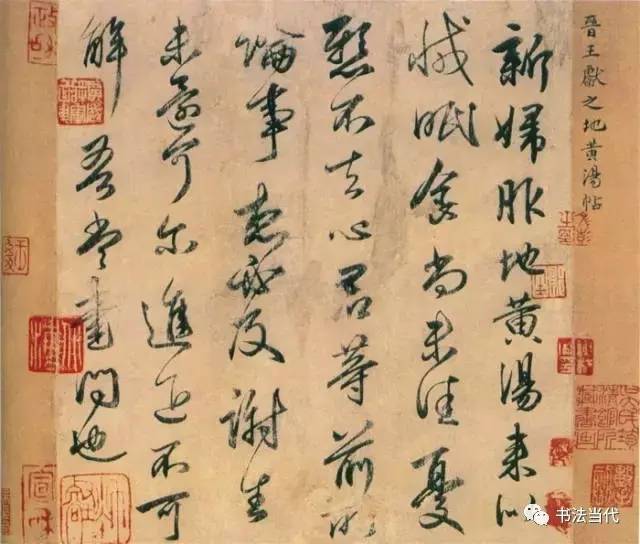 晉王獻之地黃湯帖
新婦服地黃湯来似
減眠食尚未佳憂
懸不去心君等前所
論事想必及謝生
未還可尔進退不可
解吾當書問也
书法当代